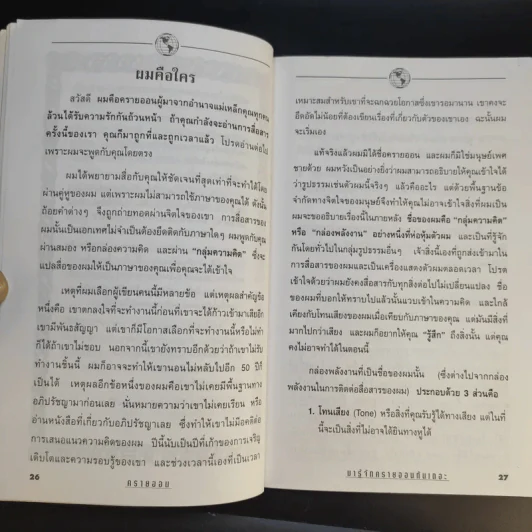 ผมคือใคร
สวัสดี ผมคือครายออนผู้มาจากอำนาจแม่เหล็กคุณทุกคน
ล้วนได้รับความรักกันถ้วนหน้า ถ้าคุณกำลังจะอ่านการสื่อสาร
ครั้งนี้ของเรา คุณก็มาถูกที่และถูกเวลาแล้ว โปรดอ่านต่อไป
เพราะผมจะพูดกับคุณโดยตรง
ผมได้พยายามสื่อกับคุณให้ชัดเจนที่สุดเท่าที่จะทำได้โดย
ผ่านคู่หูของผม แต่เพราะผมไม่สามารถใช้ภาษาของคุณได้ ดังนั้น
ถ้อยคำต่างๆ จึงถูกถ่ายทอดผ่านจิตของเขา การสื่อสารของ
ผมนั้นเป็นเอกเทศไม่จำเป็นต้องยึดติดกับภาษาใดๆ ผมพูดกับคุณ
ผ่านสมอง หรือกล่องความคิด และผ่าน "กลุ่มความคิด" ซึ่งจะ
แปลสื่อของผมให้เป็นภาษาของคุณเพื่อคุณจะได้เข้าใจ
เหตุที่ผมเลือกผู้เขียนคนนี้มีหลายข้อ แต่เหตุผลสำคัญข้อ
หนึ่งคือ เขาตกลงใจที่จะทำงานนี้ก่อนที่เขาจะได้ก้าวเข้ามาเสียอีก
เขามีพันธสัญญา แต่เขาก็มีโอกาสเลือกที่จะทำงานนี้หรือไม่ทำ
ก็ได้ถ้าเขาไม่ชอบ นอกจากนี้เขายังทราบอีกด้วยว่าถ้าเขาไม่รับ
ทำงานชิ้นนี้ ผมก็อาจจะทำให้เขานอนไม่หลับไปอีก 50 ปีก็
เป็นได้ เหตุผลอีกข้อหนึ่งของผมคือเขาไม่เคยมีพื้นฐานทาง
อภิปรัชญามาก่อนเลย นั่นหมายความว่าเขาไม่เคยเรียน หรือ
อ่านหนังสือที่เกี่ยวกับอภิปรัชญาเลย ซึ่งทำให้เขาไม่มีอคติต่อ
การเสนอแนวความคิดของผม ปีนี้นับเป็นปีที่เก้าของการเจริญ
เติบโตและความรอบรู้ของเขา และช่วงเวลานี้เองที่เป็นเวลา
26
ครายออน
เหมาะสมสำหรับเขาที่จะฉกฉวยโอกาสซึ่งเขารอมานาน เขาคงจะ
อึดอัดไม่น้อยที่ต้องเขียนเรื่องที่เกี่ยวกับตัวของเขาเอง ฉะนั้นผม
จะเริ่มเอง
แท้จริงแล้วผมมิได้ชื่อครายออน และผมก็มิใช่มนุษย์เพศ
ชายด้วย ผมหวังเป็นอย่างยิ่งว่าผมสามารถอธิบายให้คุณเข้าใจได้
ว่ารูปธรรมเช่นตัวผมนี้จริงๆ แล้วคืออะไร แต่ด้วยพื้นฐานข้อ
จำกัดทางจิตใจของมนุษย์จึงทำให้คุณไม่อาจเข้าใจสิ่งที่ผมเป็น
ผมจะขออธิบายเรื่องนี้ในภายหลัง ชื่อของผมคือ "กลุ่มความคิด"
หรือ "กล่องพลังงาน" อย่างหนึ่งที่ห่อหุ้มตัวผม และเป็นที่รู้จัก
กันโดยทั่วไปในกลุ่มรูปธรรมอื่นๆ เจ้าสิ่งนี้เองที่ถูกส่งเข้ามาใน
การสื่อสารของผมและเป็นเครื่องแสดงตัวผมตลอดเวลา โปรด
เข้าใจด้วยว่าผมยังคงสื่อสารกับทุกสิ่งต่อไปไม่เปลี่ยนแปลง ชื่อ
ของผมที่บอกให้ทราบไปแล้วนั้นแวบเข้าในความคิด และใกล้
เคียงกับโทนเสียงของผมเมื่อเทียบกับภาษาของคุณ แต่มันมีสิ่งที่
มากไปกว่าเสียง และผมก็อยากให้คุณ "รู้สึก" ถึงสิ่งนั้น แต่คุณ
คงไม่อาจทำได้ในตอนนี้
กล่องพลังงานที่เป็นชื่อของผมนั้น (ซึ่งต่างไปจากกล่อง
พลังงานในการติดต่อสื่อสารของผม) ประกอบด้วย 3 ส่วนคือ
1. โทนเสียง (Tone) หรือสิ่งที่คุณรับรู้ได้ทางเสียง แต่ในที่
นี้จะเป็นสิ่งที่ไม่อาจได้ยินทางหูได้
มารู้จักครายออนกันเถอะ
27